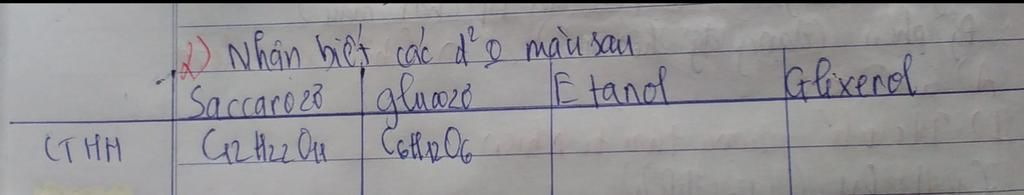 2) Nhận biết các d² ko màu sau
Saccarozơ glucozơ Etanol Glixerol
CTHH C12H22O11 C6H12O6